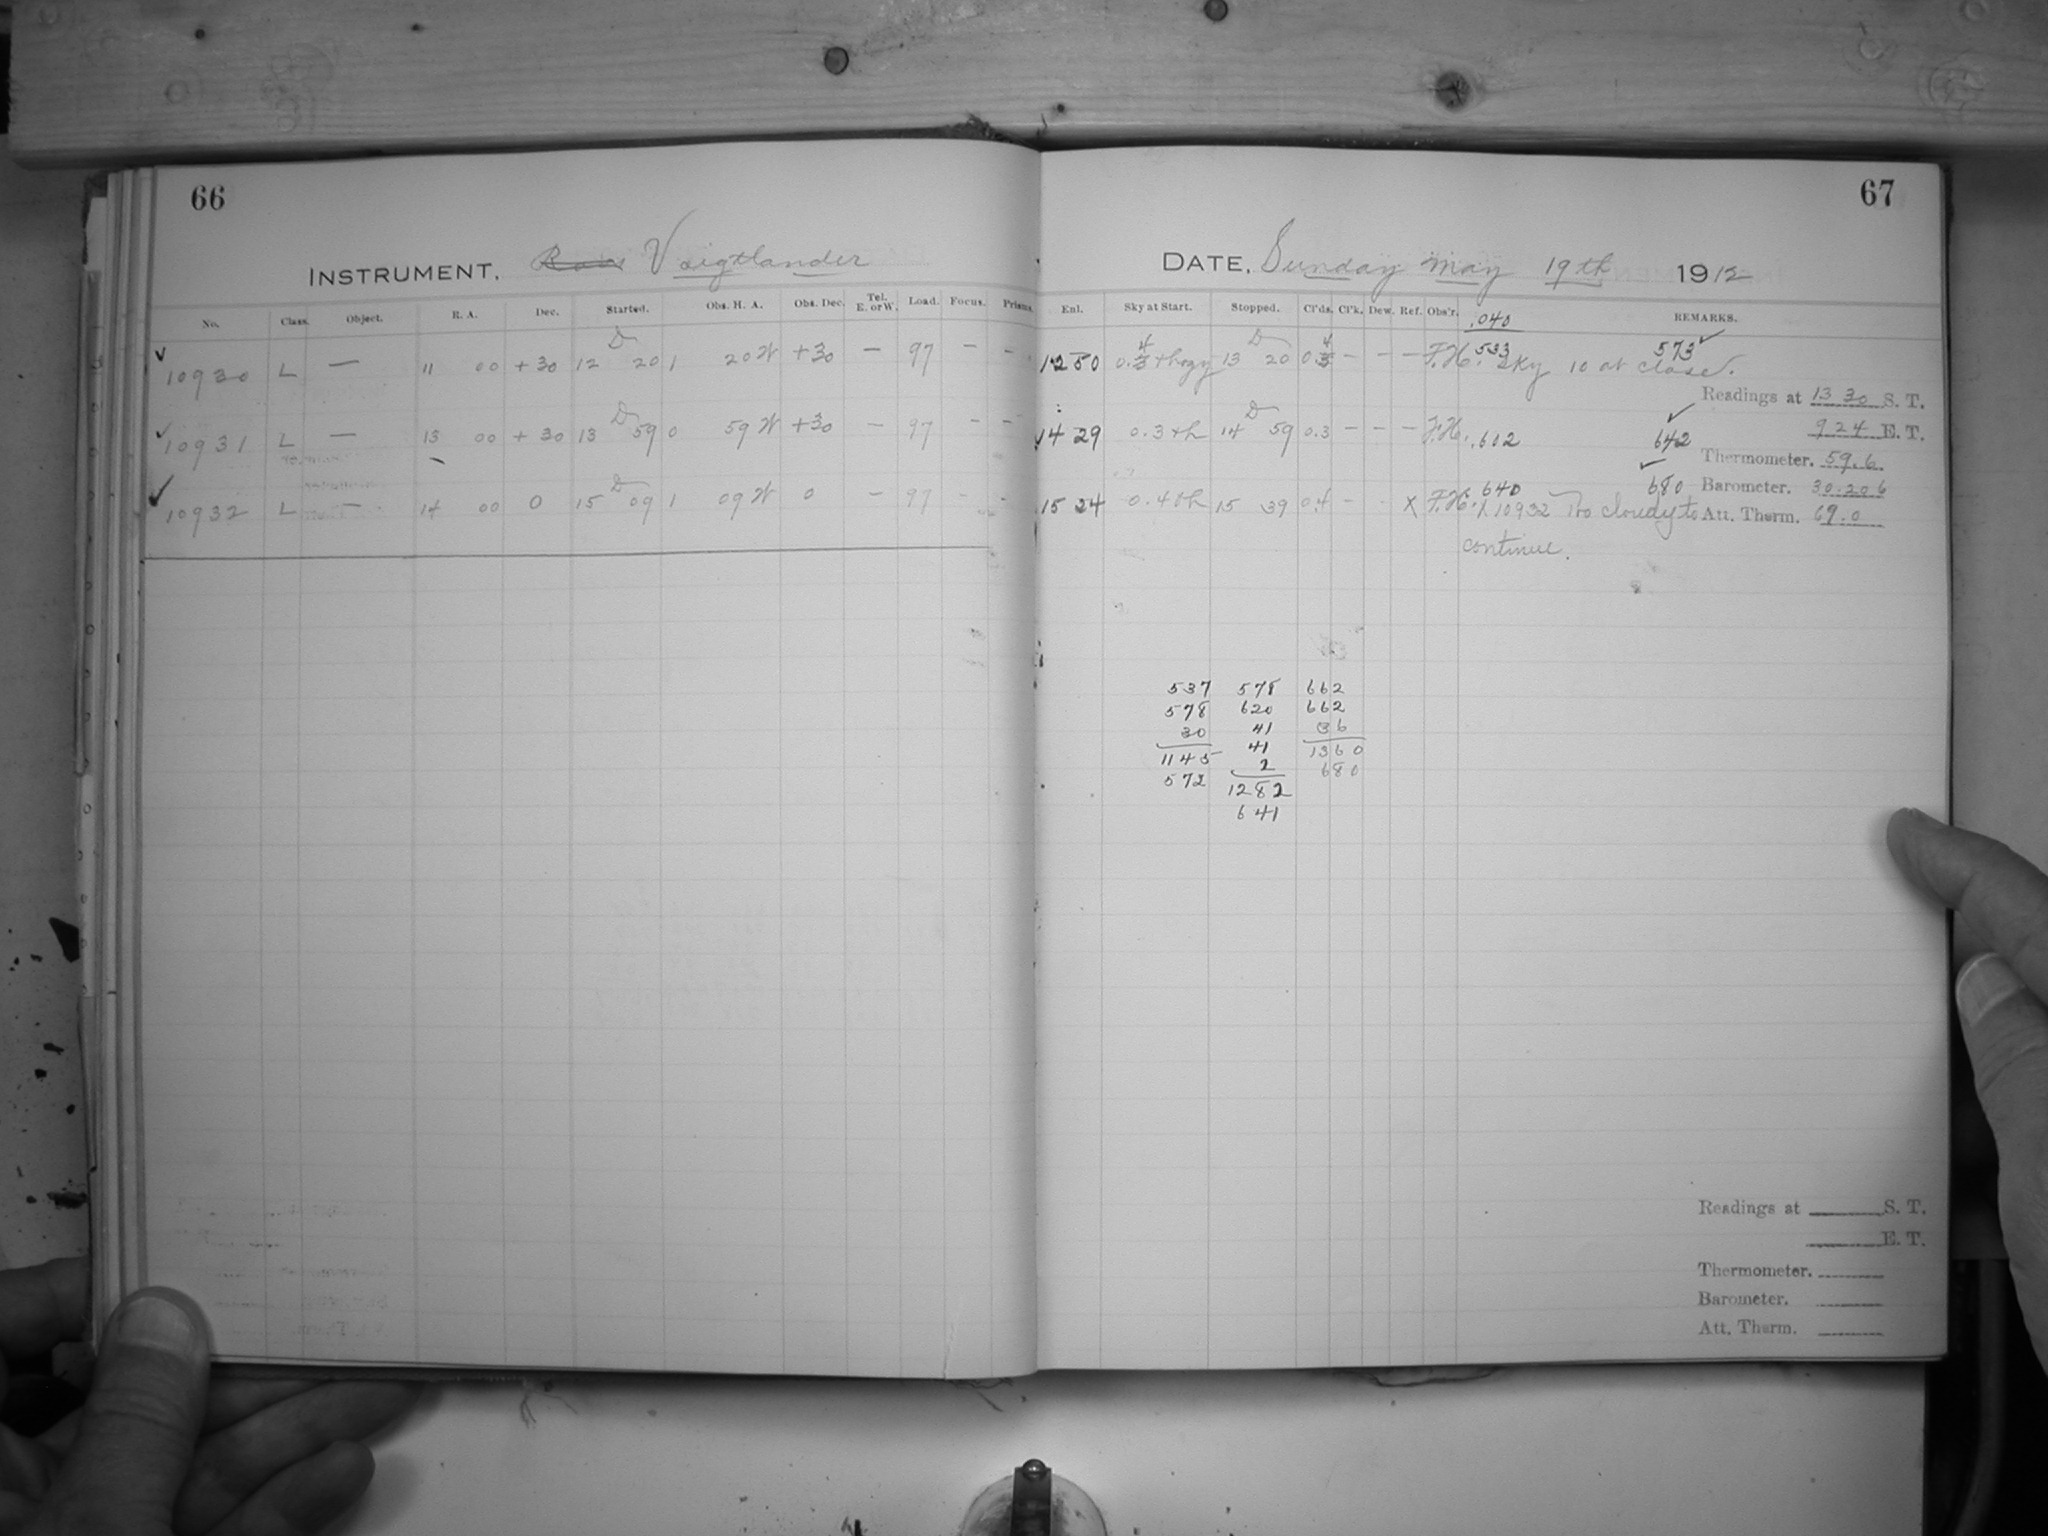 66
67
INSTRUMENT. Voigtlander
DATE, Sunday May 19th 1912
No. Class. Object. R. A. Dec. Started. Obs. H. A. Obs. Dec. Tel. E. or W. Load. Focus. Prisms.
Enl. Sky at Start. Stopped. Cl'ds. Cl'k. Dew. Ref. Obs'r. .040 REMARKS.
✓ 10930 L — 11 00 +30 12 20 1 20 W +30 — 97 — —
12 50 0.4 + hazy 13 20 0.4 — — — F.H. 533 573 ✓
Sky 10 at close.
Readings at 13 30 S. T.
✓ 10931 L — 13 00 +30 13 59 0 59 W +30 — 97 — —
14 29 0.3 th 14 59 0.3 — — — F.H. .602 642 ✓
9 24 E. T.
Thermometer. 59.6
✓ 10932 L — 14 00 0 15 09 1 09 W 0 — 97 — —
15 24 0.4 th 15 39 0.4 — - X F.H. 640 680 ✓
Barometer. 30.206
X 10932 Too cloudy to
Att. Therm. 69.0
continue.
537 578 662
578 620 662
30 41 36
1145 41 1360
572 2 680
1282
641
Readings at S. T.
E. T.
Thermometer.
Barometer.
Att. Therm.